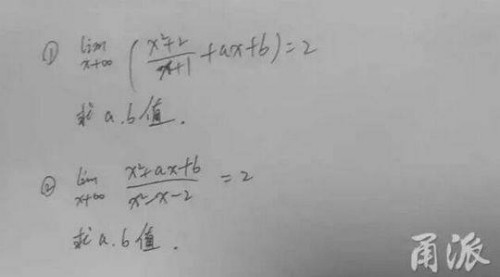 ① lim x→∞ (x²+2/x+1 + ax+b) = 2
求 a.b 值.
② lim x→∞ x²+ax+b/x²-x-2 = 2
求 a.b 值.
甬派